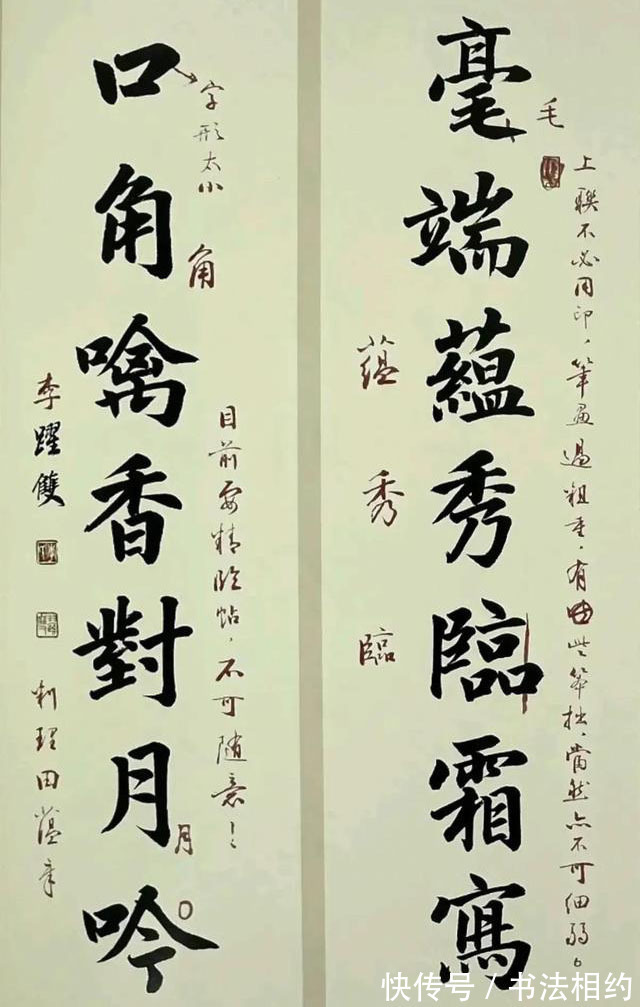 毫端蘊秀臨霜寫
毛
上联不必用印，筆画過粗重，有些笨拙，當然亦不可细弱。
蘊
秀
臨
口角噙香對月吟
字形太小
角
目前要精临帖，不可随意
月
李躍雙
快传号／书法相约